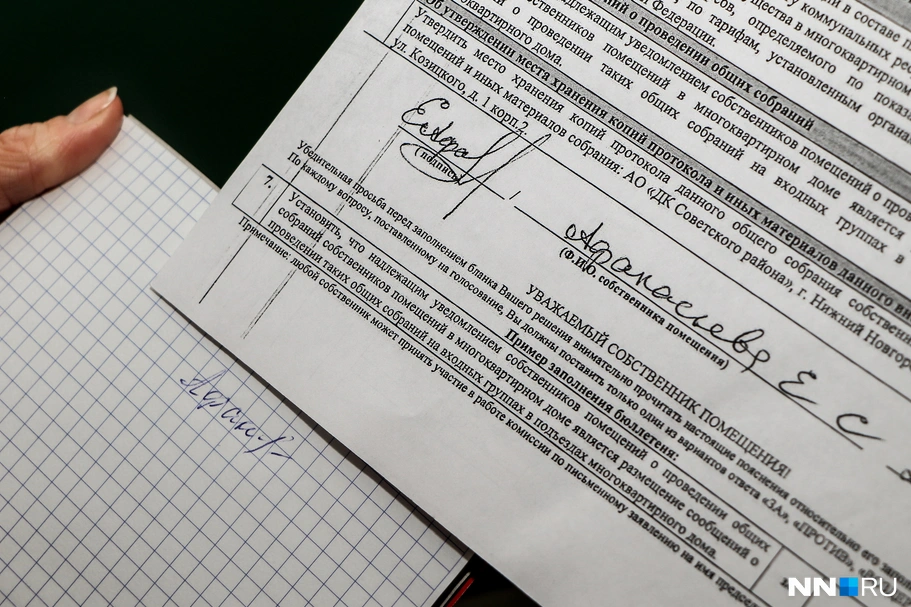 в составе п
коммунальных рес
щества в многоквартирном
определяемого по показа
по тарифам, установленным органа
Федерации.
ний о проведении общих собраний
надлежащим уведомлением собственников помещений о пров
бственников помещений в многоквартирном доме является
й о проведении таких общих собраний на входных группах в
оквартирного дома.
Об утверждении места хранения копий протокола и иных материалов данного вн
Утвердить место хранения копий протокола данного общего собрания собственни
помещений и иных материалов собрания: АО «ДК Советского района», г. Нижний Новгор
ул. Козицкого, д. 1 корп.2
(подпись)
Афанасьева Е С
(Ф.И.О. собственника помещения)
УВАЖАЕМЫЙ СОБСТВЕННИК ПОМЕЩЕНИЯ!
Убедительная просьба перед заполнением бланка Вашего решения внимательно прочитать настоящие пояснения относительно его запо
По каждому вопросу, поставленному на голосование, Вы должны поставить только один из вариантов ответа «ЗА», «ПРОТИВ»,
Пример заполнения бюллетеня:
7.
Установить, что надлежащим уведомлением собственников помещений о проведении общих
собраний собственников помещений в многоквартирном доме является размещение сообщений о
проведении таких общих собраний на входных группах в подъездах многоквартирного дома.
Примечание: любой собственник может принять участие в работе комиссии по письменному заявлению на имя предсе
NN RU